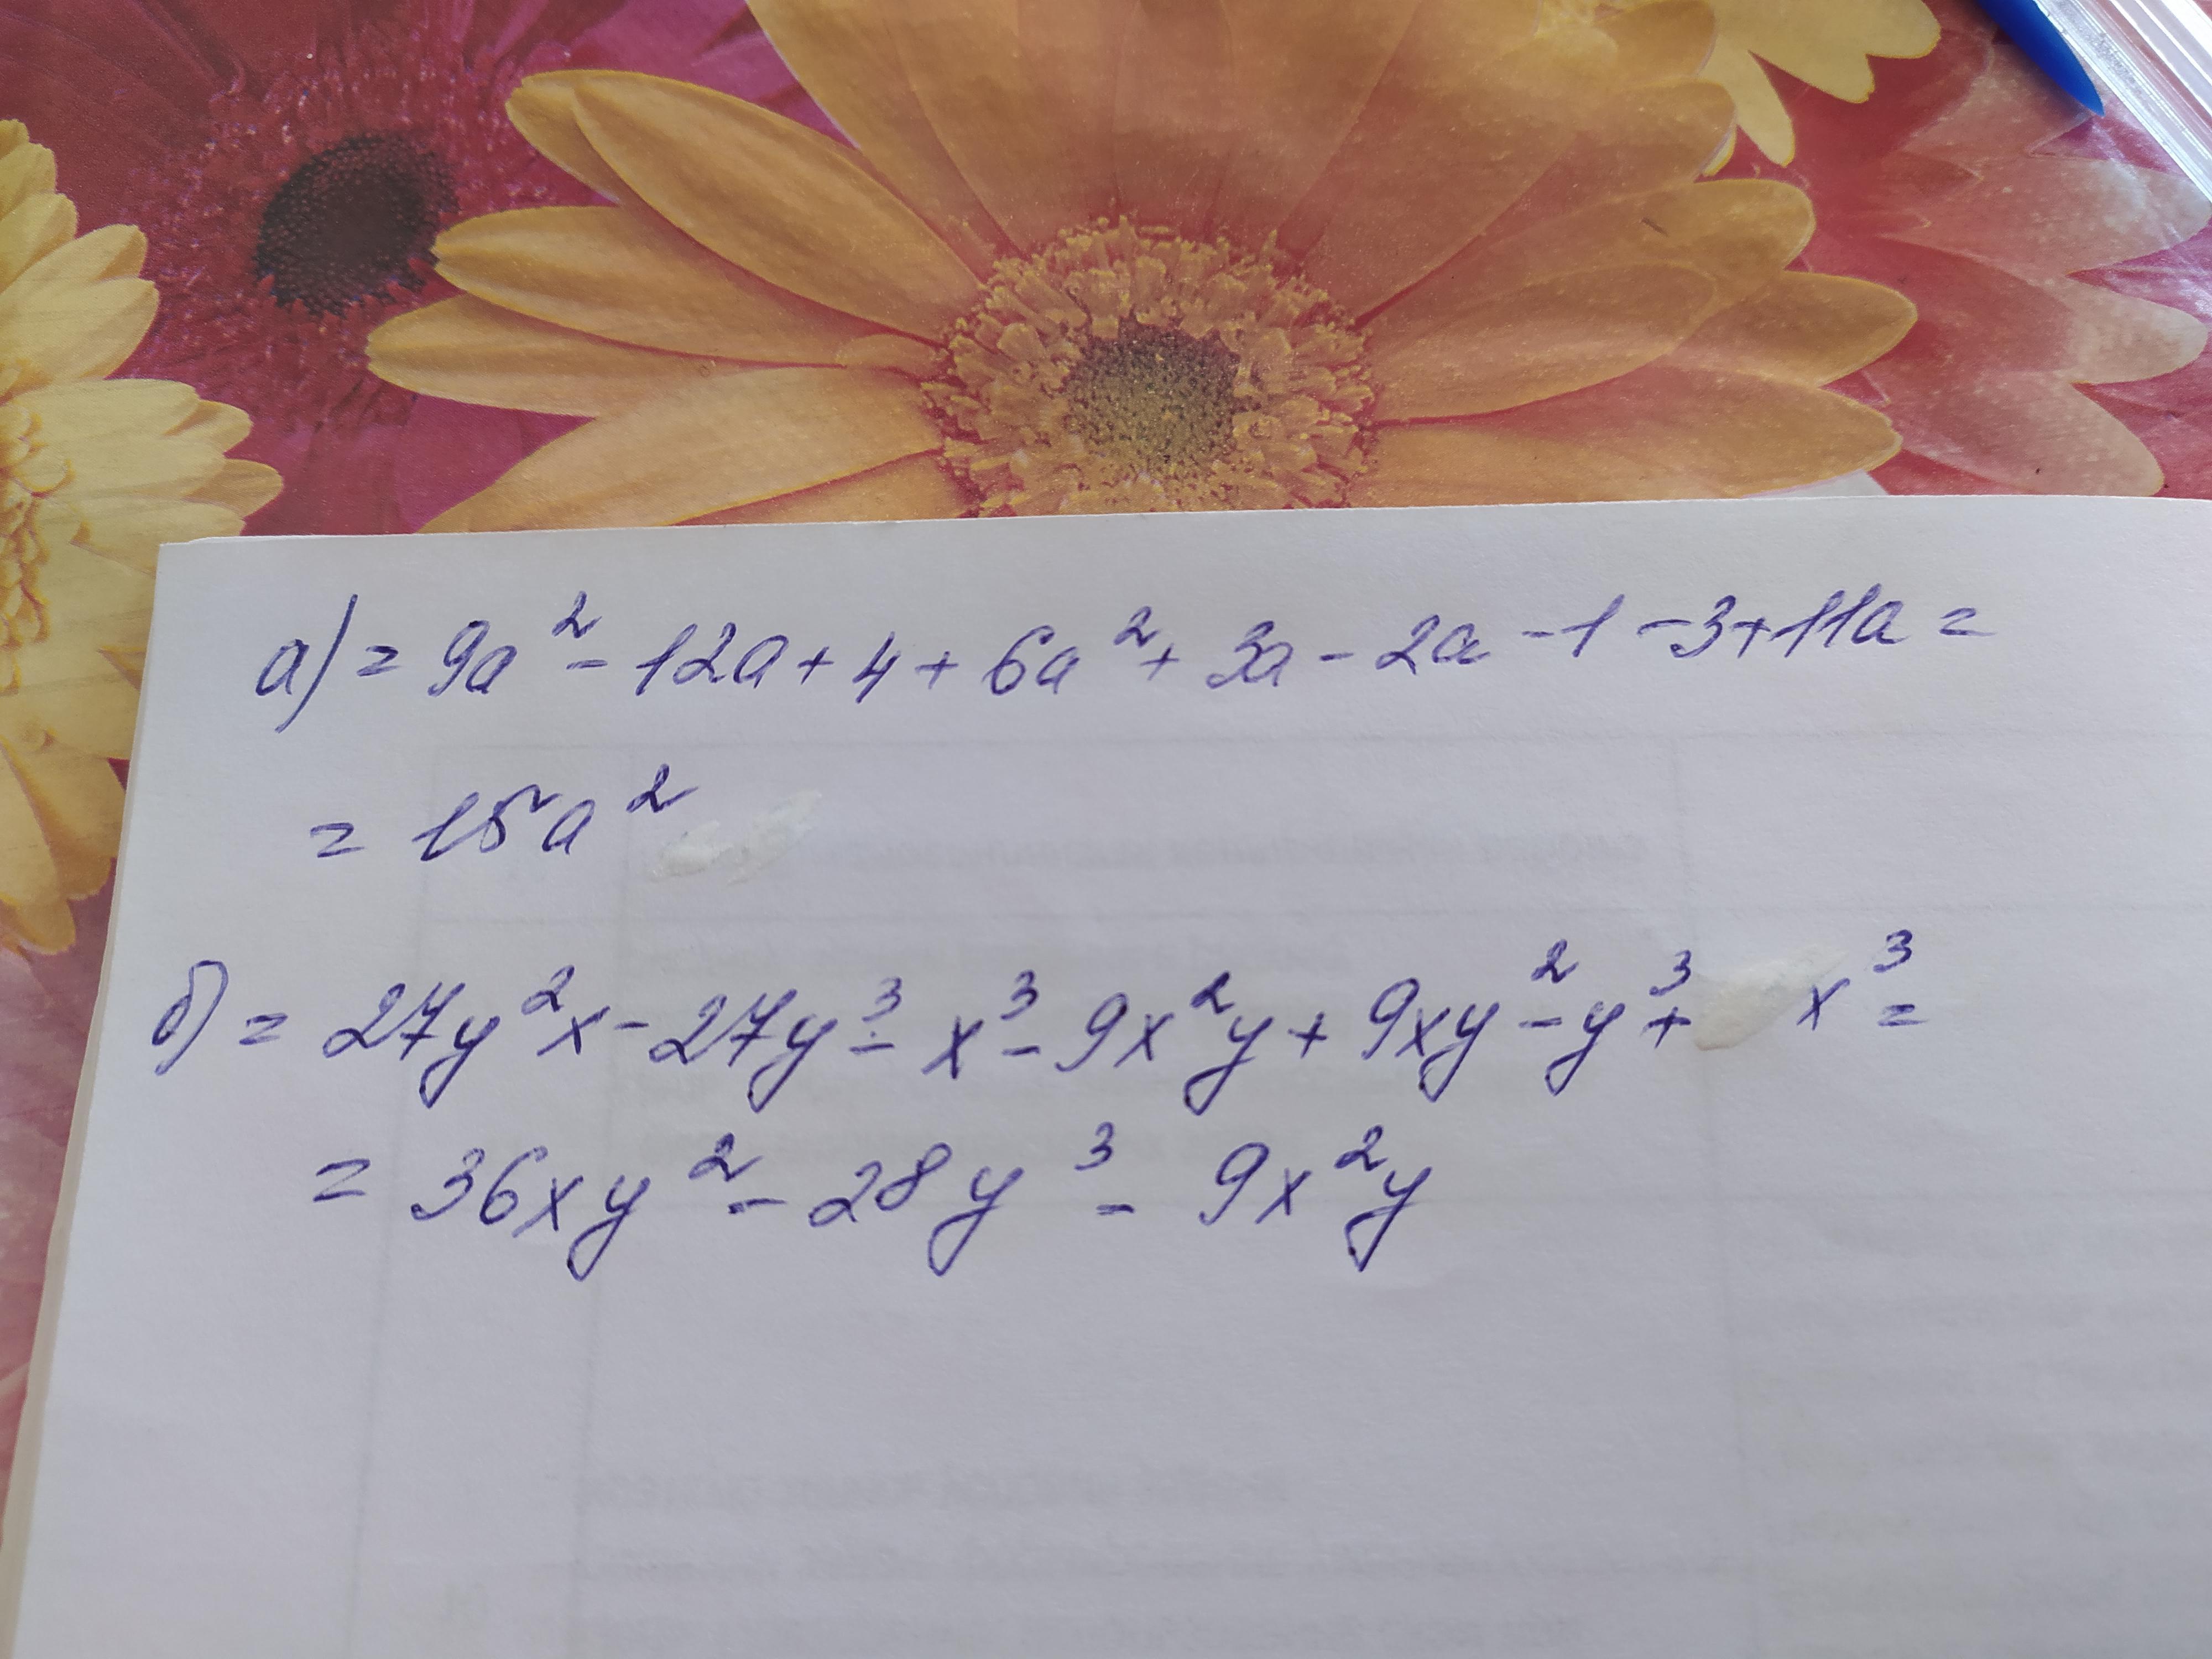 а) = 9a² - 12a + 4 + 6a² + 3a - 2a - 1 - 3 + 11a =
= 15a²
б) = 27y²x - 27y³ - x³ - 9x²y + 9xy² - y³ + x³ =
= 36xy² - 28y³ - 9x²y